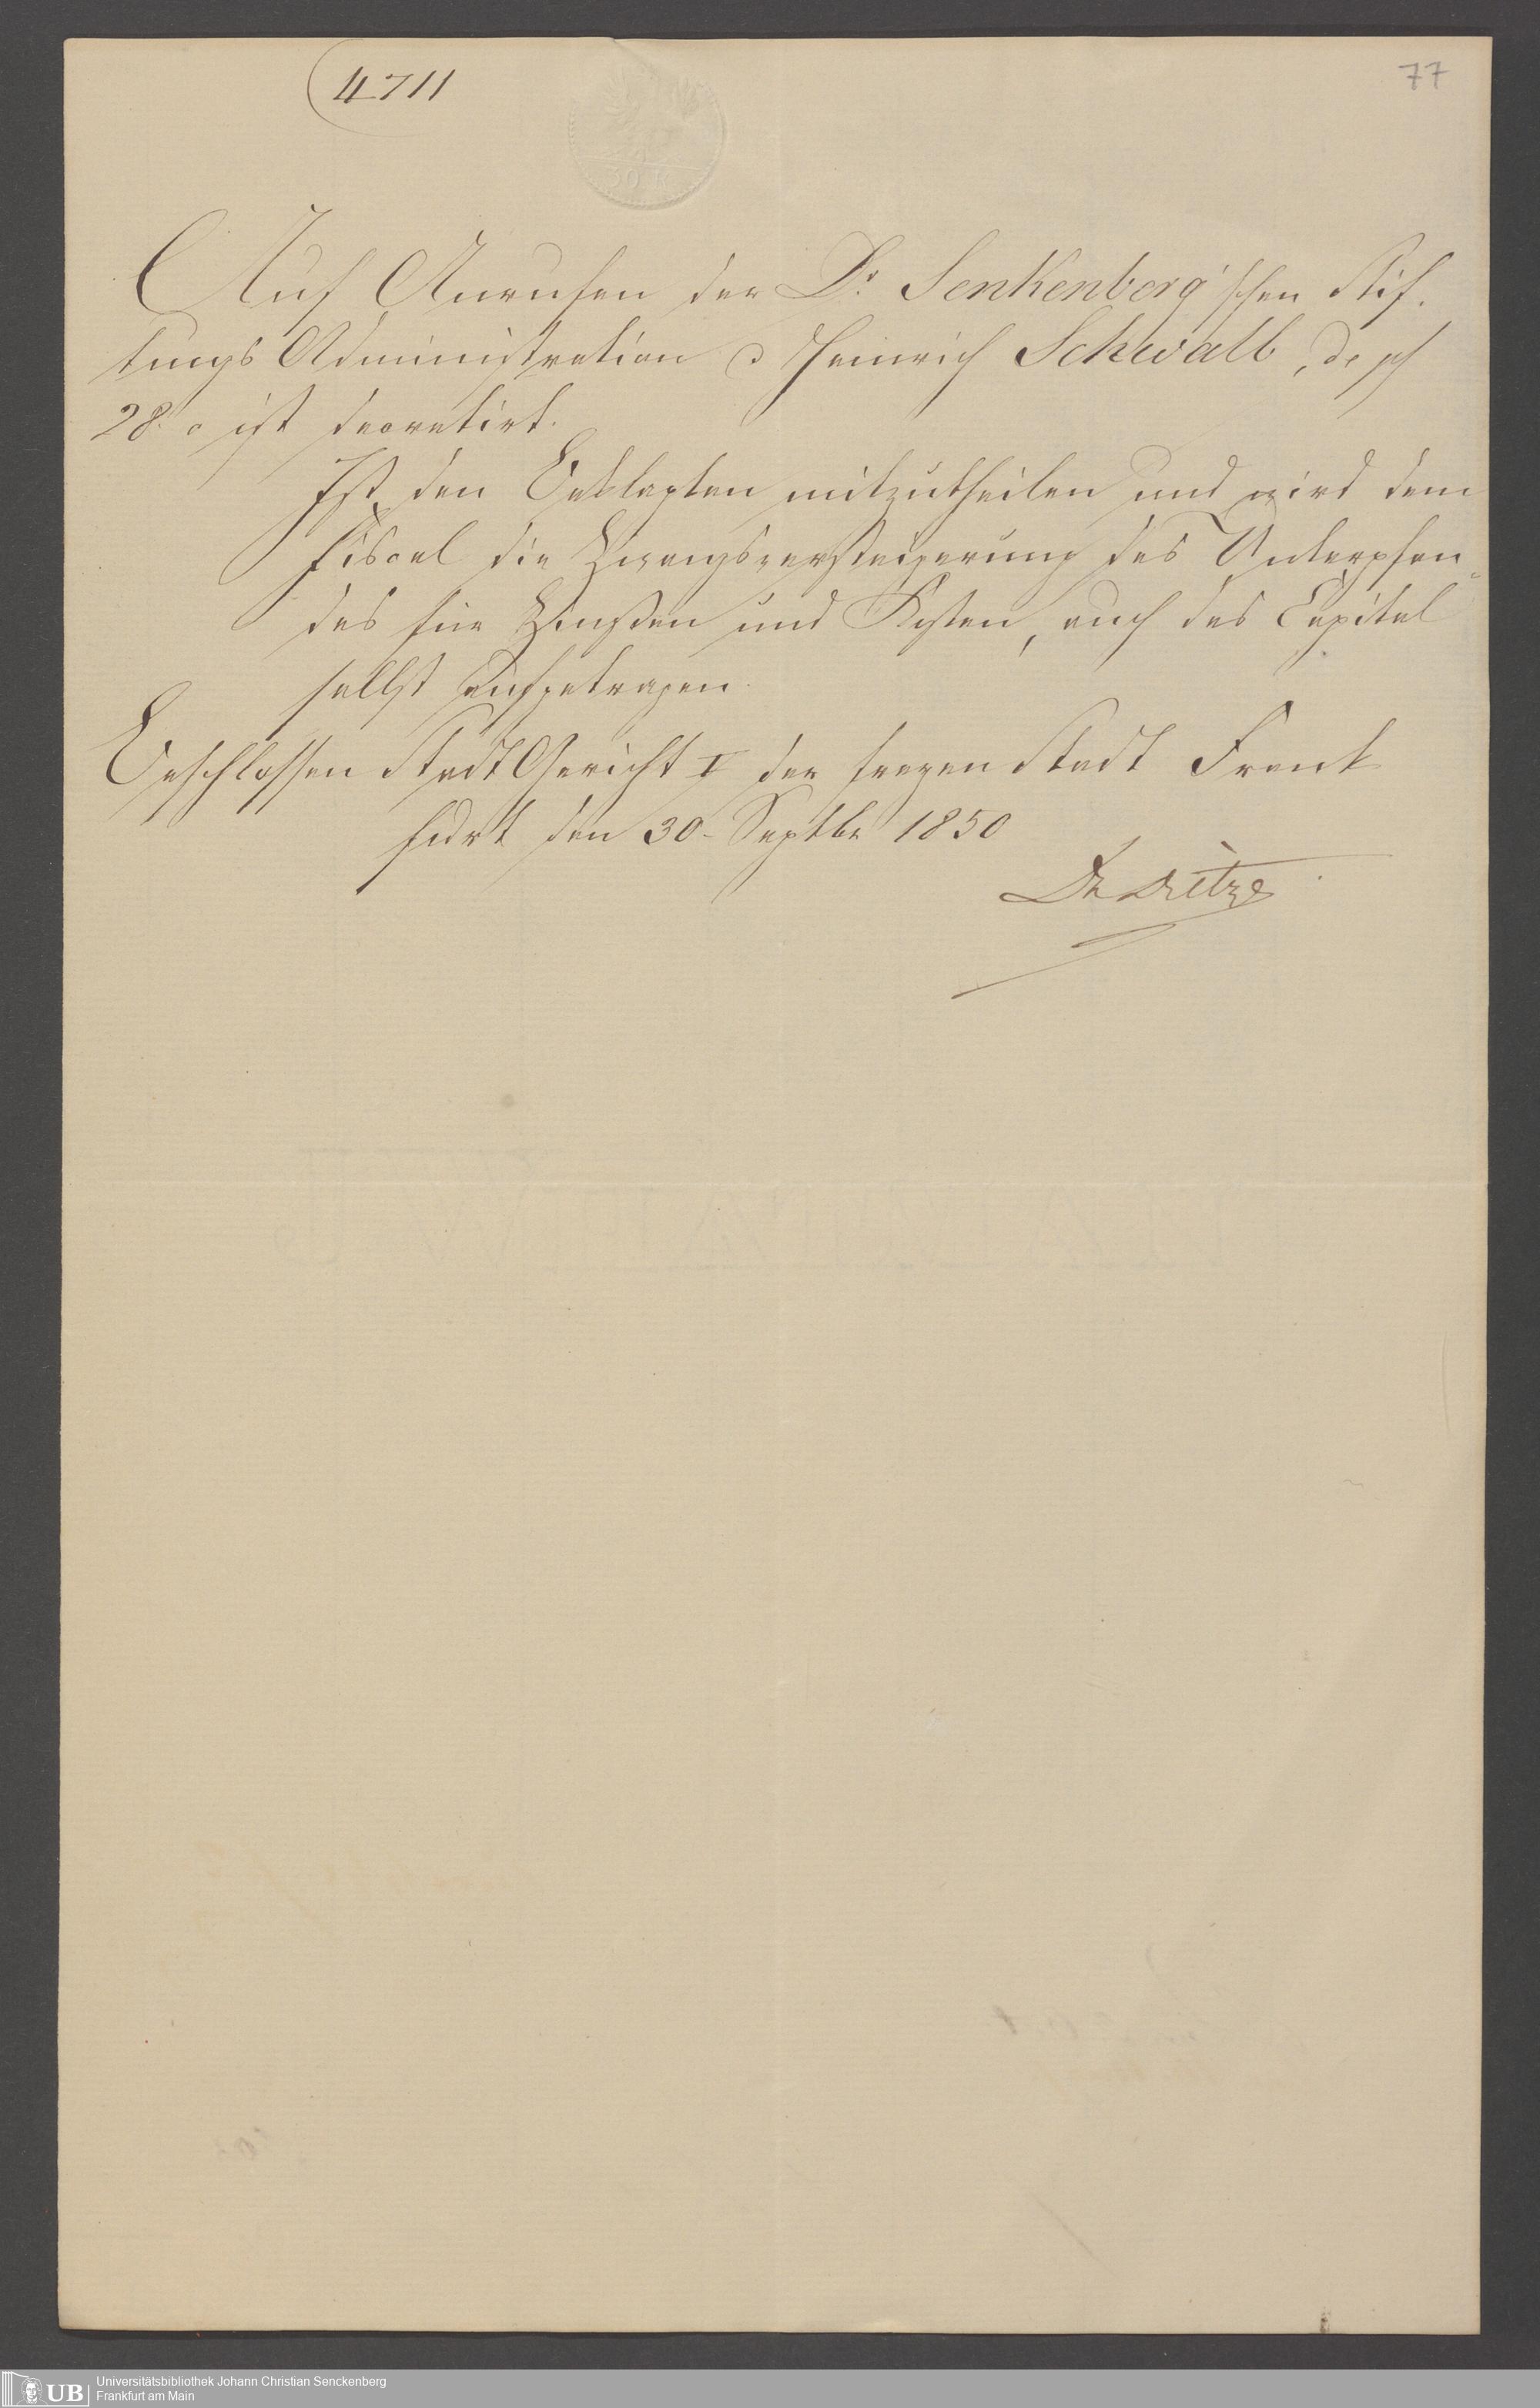 4711
77
Auf Anrufen der Dr. Senkenberg'schen Stif-
tungs Administration c Heinrich Schwalb, de ps
28. c ist decretirt.
Ist den Beklagten mitzutheilen und wird dem
Fiscal die Zwangsversteigerung des Unterpfan-
des für Zinßen und Kosten, auch das Capital
selbst aufgetragen.
Beschlossen StadtGericht I der freyen Stadt Frank
furt den 30. Septbr 1850
Dr
UB
Universitätsbibliothek Johann Christian Senckenberg
Frankfurt am Main